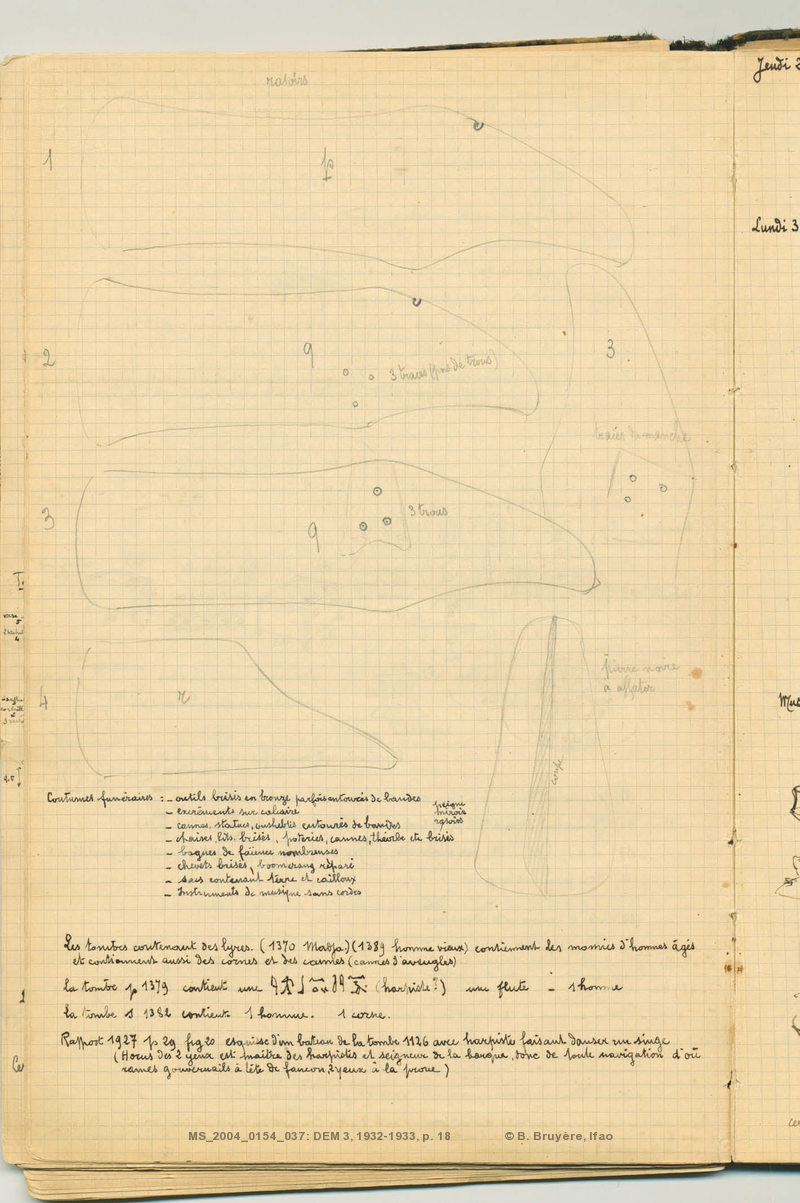 rasoirs
1
p
2
q
3 traces (pas de trous)
3
traces du manche
3
q
3 trous
4
r
pierre noire
à affuter
coupe
Coutumes funéraires : - outils brisés en bronze parfois entourés de bandes
peigne
miroir
rasoirs
- excréments sur calcaire
- cannes, statues, oushebtis entourés de bandes
- chaises lits brisés, poteries, cannes, théorbe etc brisés
- bagues de faïence nombreuses
- chevets brisés, boomerang réparé
- sacs contenant terre et cailloux
- Instruments de musique sans cordes
Les tombes contenant des lyres. (1370 Madja) (1389 homme vieux) contiennent des momies d'hommes âgés
et contiennent aussi des cornes et des cannes (cannes d'aveugles)
la tombe p 1379 contient une (harpiste?) une flute - 1 homme
la tombe s 1382 contient 1 homme. 1 corne.
Rapport 1927 p 29 fig 20 esquisse d'un bateau de la tombe 1126 avec harpiste faisant danser un singe
(Horus des 2 yeux est maître des harpistes et seigneur de la barque, donc de toute navigation d'où
rames gouvernails à tête de faucon, 2 yeux à la proue)
Jeudi 2
Lundi 3
MS_2004_0154_037: DEM 3, 1932-1933, p. 18 © B. Bruyère, Ifao